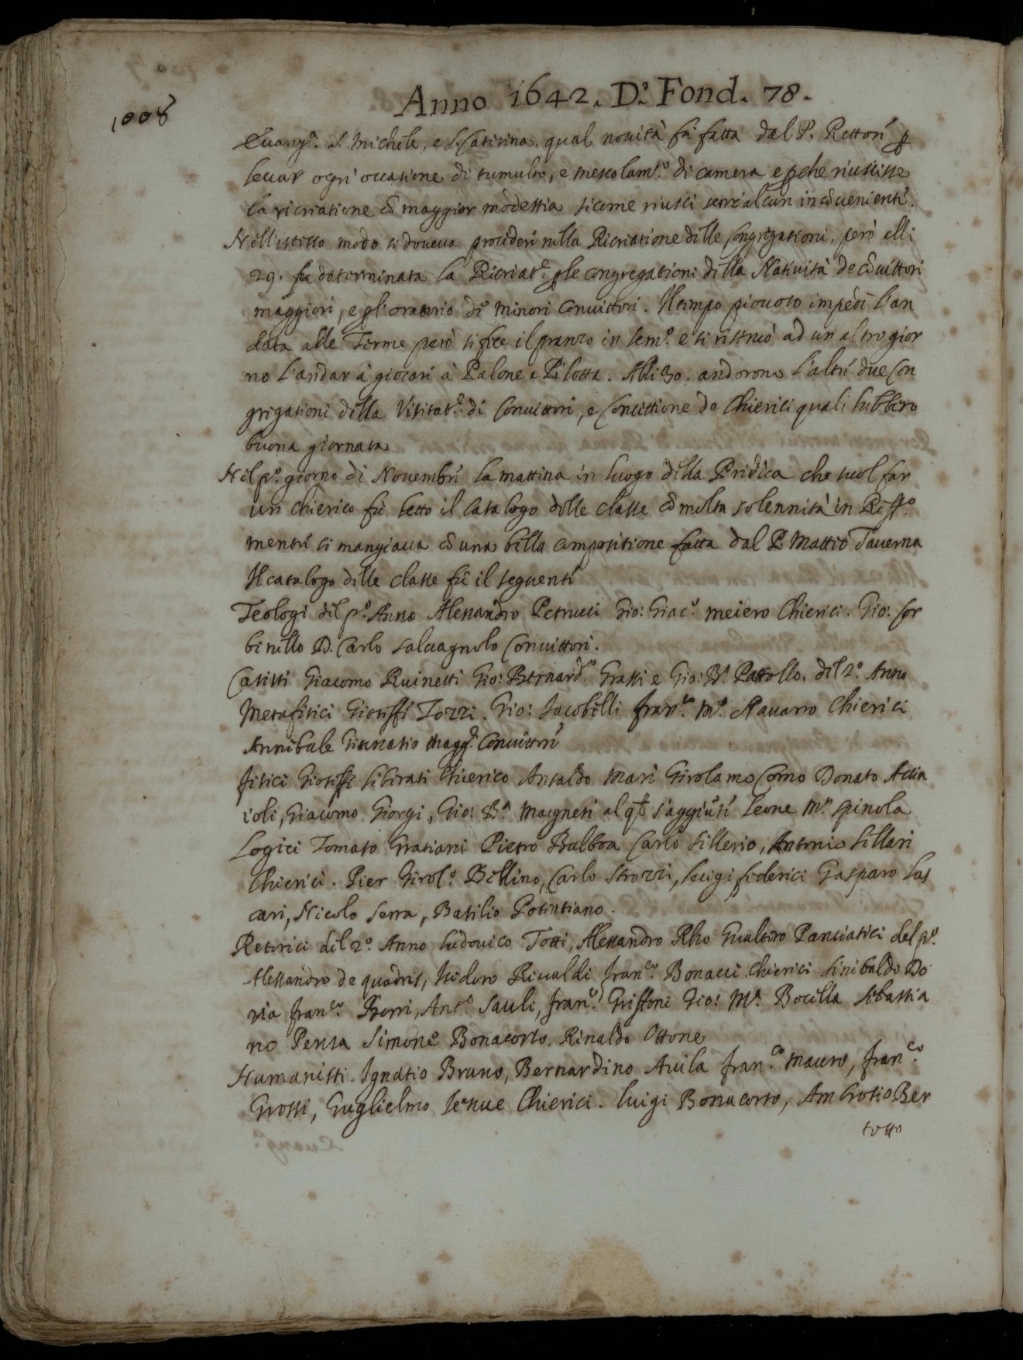 1008
Anno 1642. D.ª Fond. 78.
Euang.ª S. Michele, e S. Catirina, qual nouità fù fatta dal P. Rettorè ꝑ
leuar ogni occatione di tumulto, e mescolam.to di camera e ꝑche riuscisse
la ricriatione cō maggior modestia sicome riusci senz'alcun incōuenientè.
Nell'istesso modo si doueua procederè nella Ricriatione delle Congregationi, però alli
29. fu determinata la Ricriat.e ꝑ le congregationi della Natiuità de cōuittori
maggiori, e ꝑ l'oratorio de minori Conuittori. Il tempo piouoso impedì l'an
data alle Terme però si fece il pranzo in Sem.o e si riseruò ad un altro gior
no l'andar à giocarè à Palone e Pilotta. Alli 30. andorono l'altrè due Con
gregationi della Visitat.e di Conuittori, e Concettione de Chierici quali hebbero
buona giornata
Nel p.o giorno di Nouembrè la mattina in luogo della Predica che suol far
un chierico fù letto il Catalogo delle classe cō molta solennità in Reff.o
mentrè si mangiaua cō una bella compositione fatta dal P. Mattio Tauerna
Il catalogo delle classe fù il seguentè
Teologi del p.o Anno Alessandro Petrucci Gio: Giac.o meiero Chierici. Gio: Cor
binello D. Carlo Saluagnolo Conuittori.
Casisti Giacomo Ruinetti Gio: Bernard.o Grassi e Gio: B.a Pattollo. del 2.o Anno
Metafisici Gioseffè Tozzi. Gio: Jacobelli fran.co M.a Nauarro Chierici
Annibale Giunatio magg.r Conuittorè
fisici Gioseffè Liberati Chierico Ansaldo Mari Girolamo Como Donato Accia
ioli, Giacomo Giorgi, Gio: B.a Maignerè al qle s'aggiunsè Leone M.a Spinola
Logici Tomaso Gratiani Pietro Balboa Carlo Sillerio, Antonio Sillari
Chierici. Pier Girol.o Bellino, Carlo Strozzi, Luigi federici Gasparo Las
cari, Nicolo Serra, Basilio Potentiano.
Retorici del 2.o Anno Ludouico Totti, Alessandro Rho Gualtero Panciatici del p.o
Alessandro de quadris, Isidoro Riualdi fran.co Bonacci Chierici Sinibaldo Do
ria fran.co Ferri, Ant.o Sauli, fran.co Griffoni Gio: M.a Bocilla Sebastia
no Penza Simonè Bonacorso. Rinaldo Ottone
Humanisti. Ignatio Bruno, Bernardino Auila fran.co Mauro, fran.co
Grossi, Guglielmo Chierici. Luigi Bonacorso, Ambrosio Ber
totto